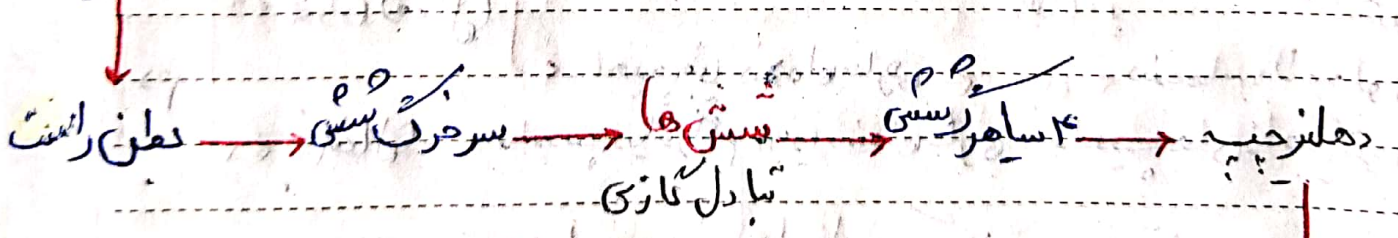 بطن راست → سرخرگ ششی → شش ها → ۴ سیاهرگ ششی → دهلیز چپ
تبادل گازی